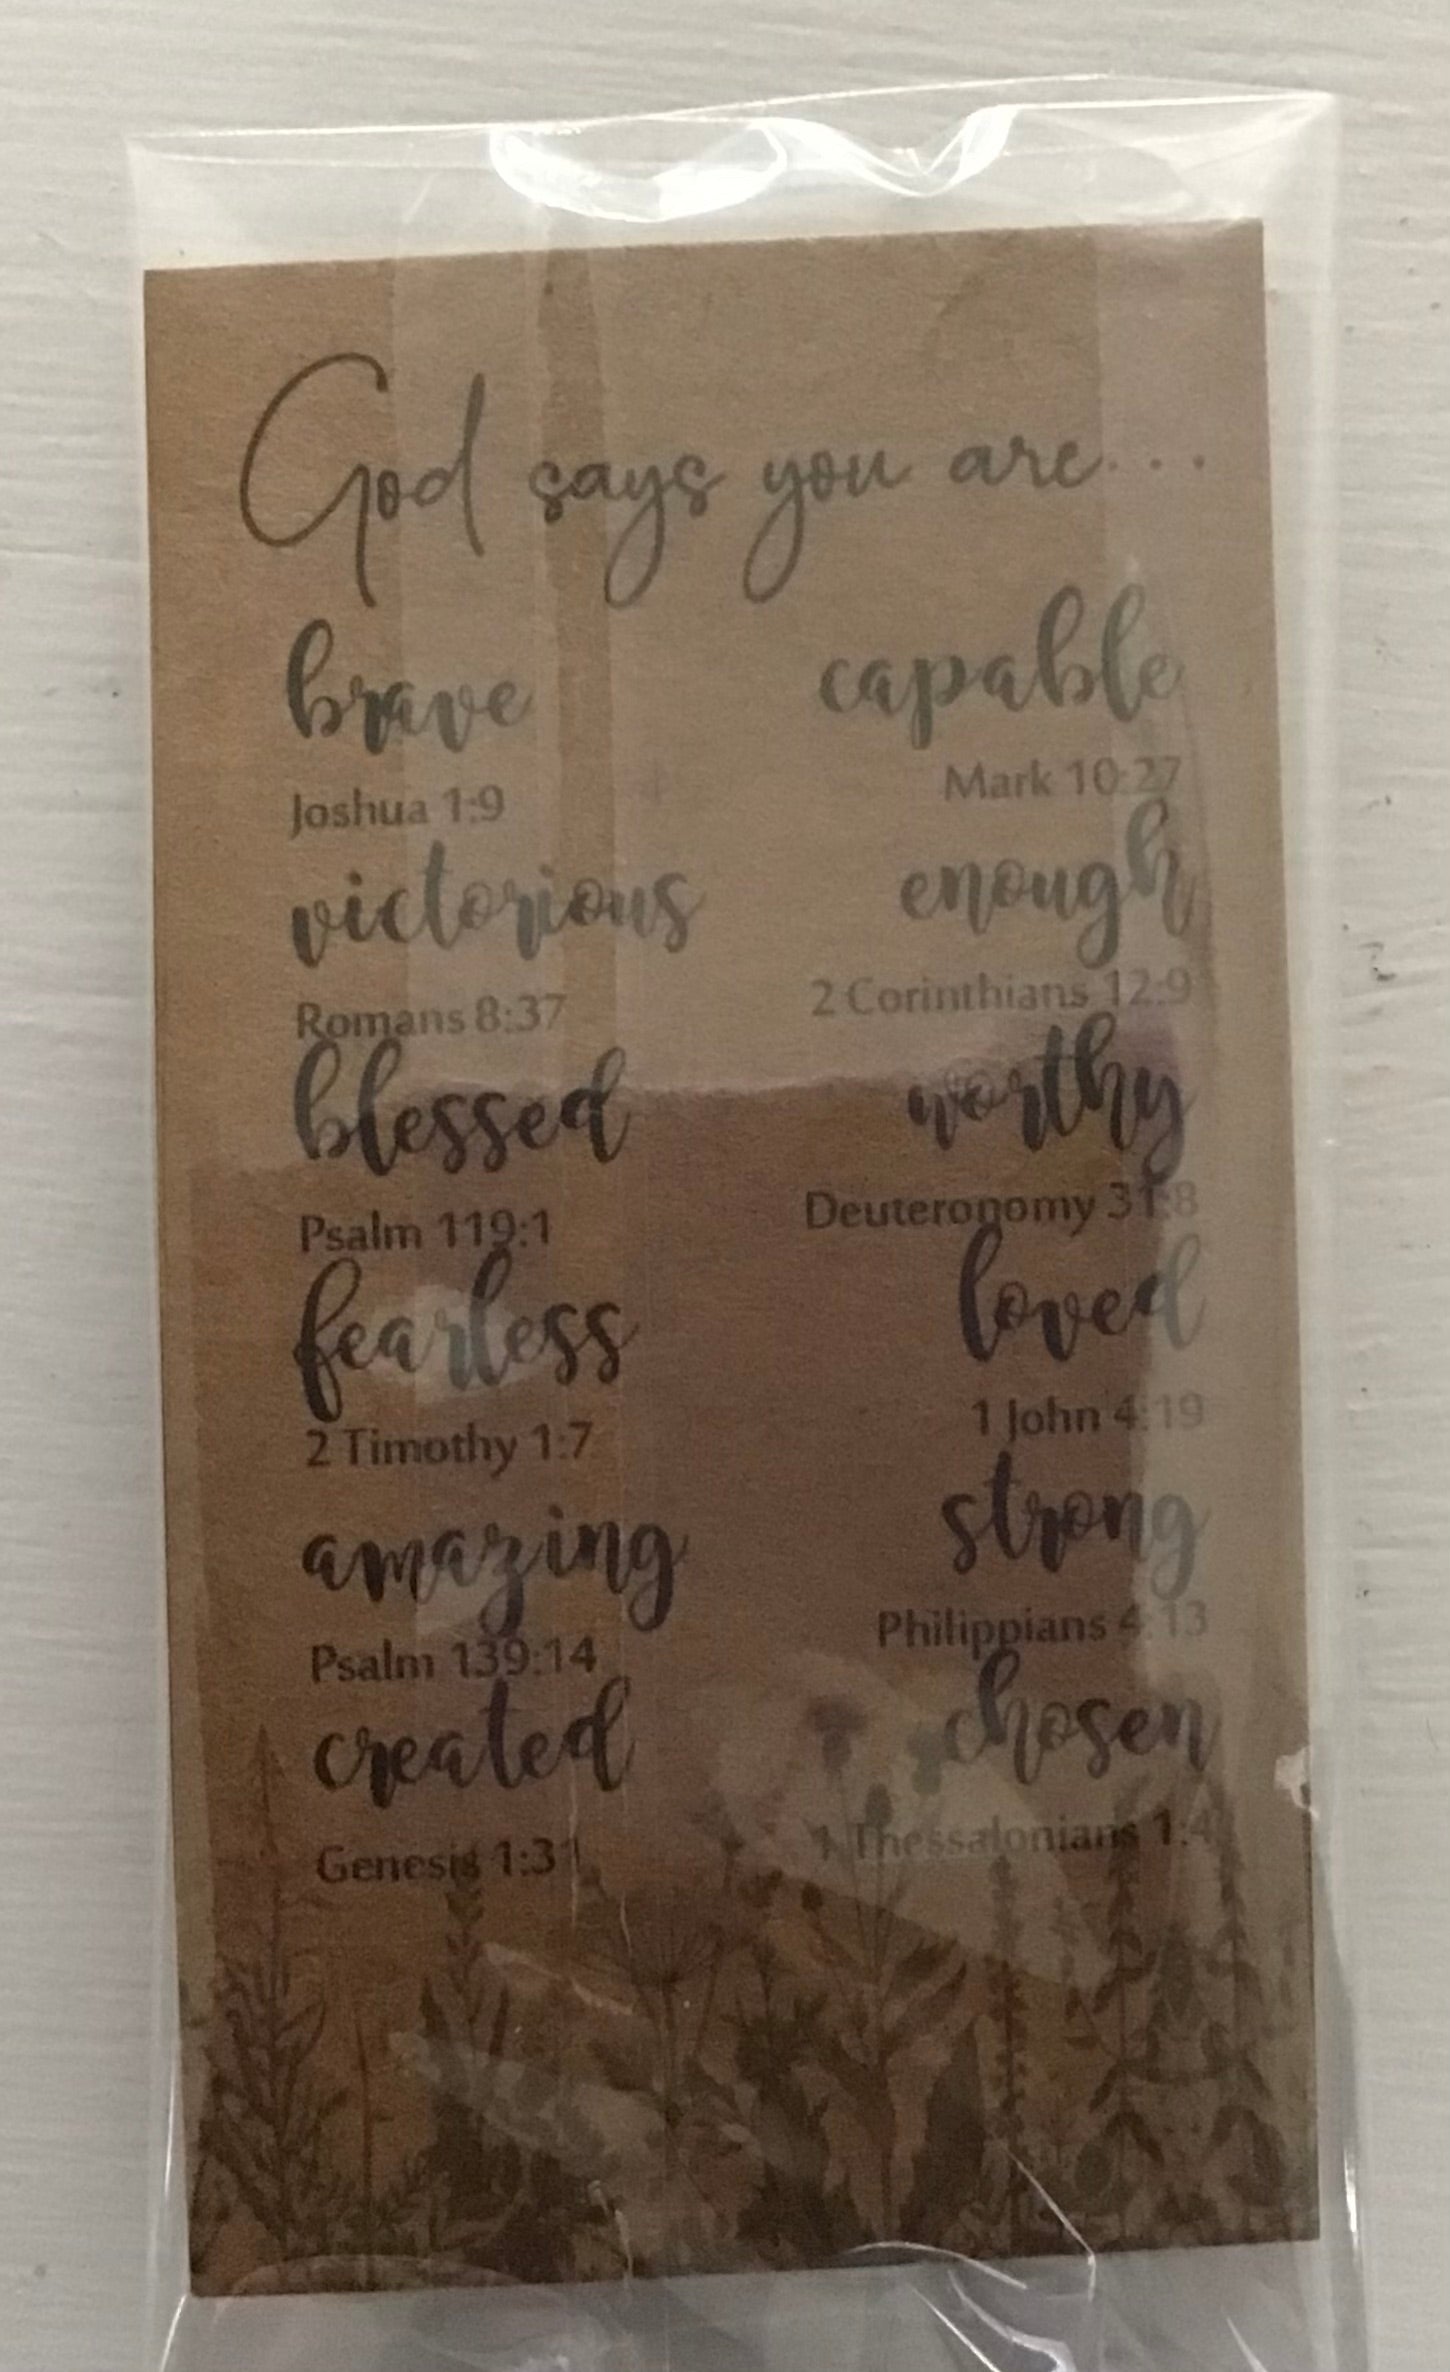 God says you are...
brave
Joshua 1:9
victorious
Romans 8:37
blessed
Psalm 119:1
fearless
2 Timothy 1:7
amazing
Psalm 139:14
created
Genesis 1:31
capable
Mark 10:27
enough
2 Corinthians 12:9
worthy
Deuteronomy 31:8
loved
1 John 4:19
strong
Philippians 4:13
chosen
1 Thessalonians 1:4